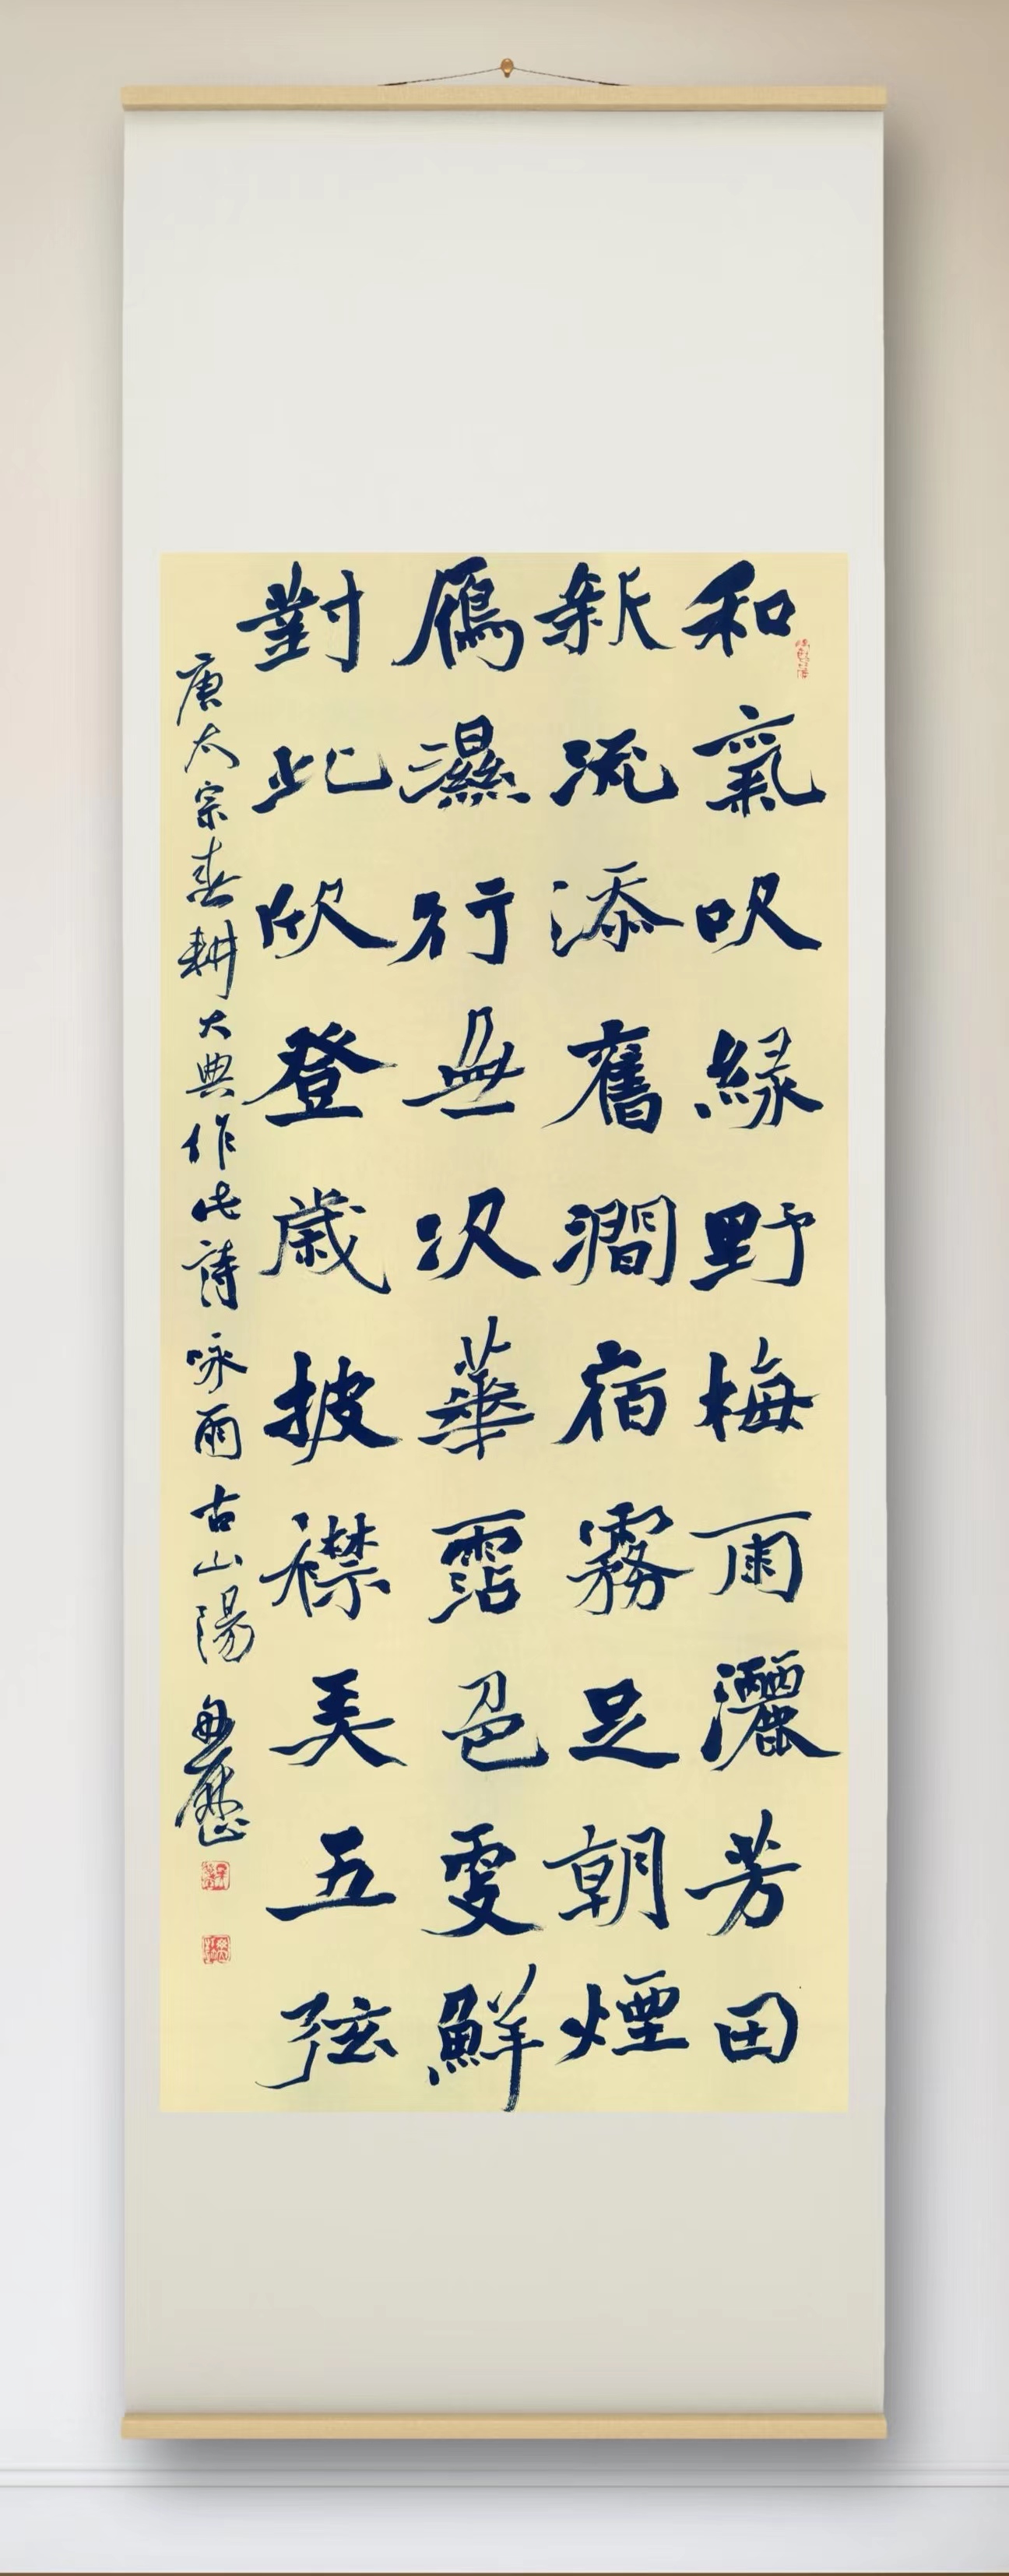 和氣吹緑野梅雨灑芳田
新流添舊澗宿霧足朝煙
鴈濕行無次華霑色更鮮
對此欣登歲披襟美五弦
唐太宗春耕大典作此詩咏雨古山陽